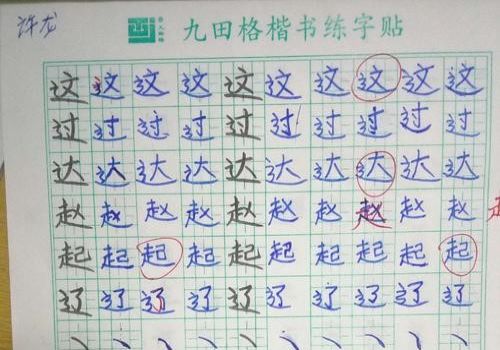 许龙
九田格楷书练字贴
这这这这这这这这这这
过过过过过过过过过过
达达达达达达达达达达
赵赵赵赵赵赵赵赵赵赵
起起起起起起起起起起
辽辽辽辽辽辽辽辽辽